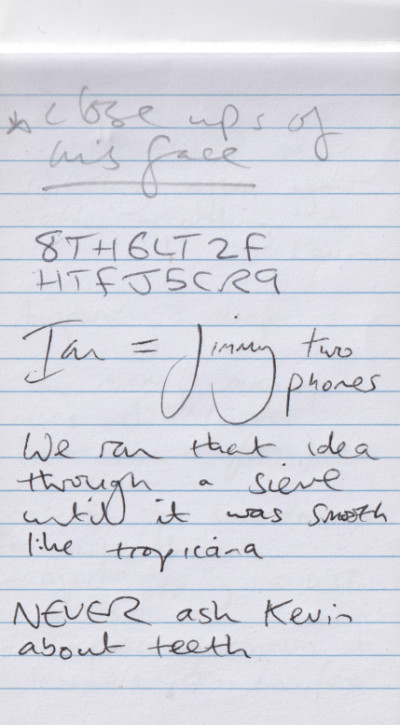 * close ups of
his face
8TH6LT2F
HTFJ5CR9
Ian = Jimmy two
phones
We ran that idea
through a sieve
until it was smooth
like tropicana
NEVER ask Kevin
about teeth